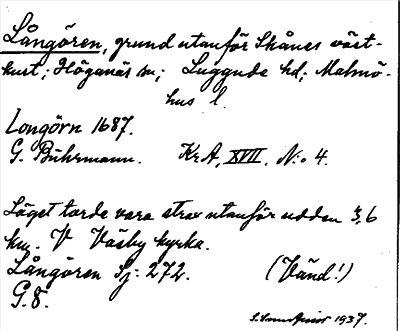 Långören, grund utanför Skånes väst-
kust; Höganäs sn; Luggude hd; Malmö-
hus l.
Longörn 1687.
G. Bührmann. KrA, XVII, N:o 4.
Läget torde vara strax utanför udden 3,6
km. V Väsby kyrka.
Långören Sj: 272. (Vänd!)
G.8.
1937.